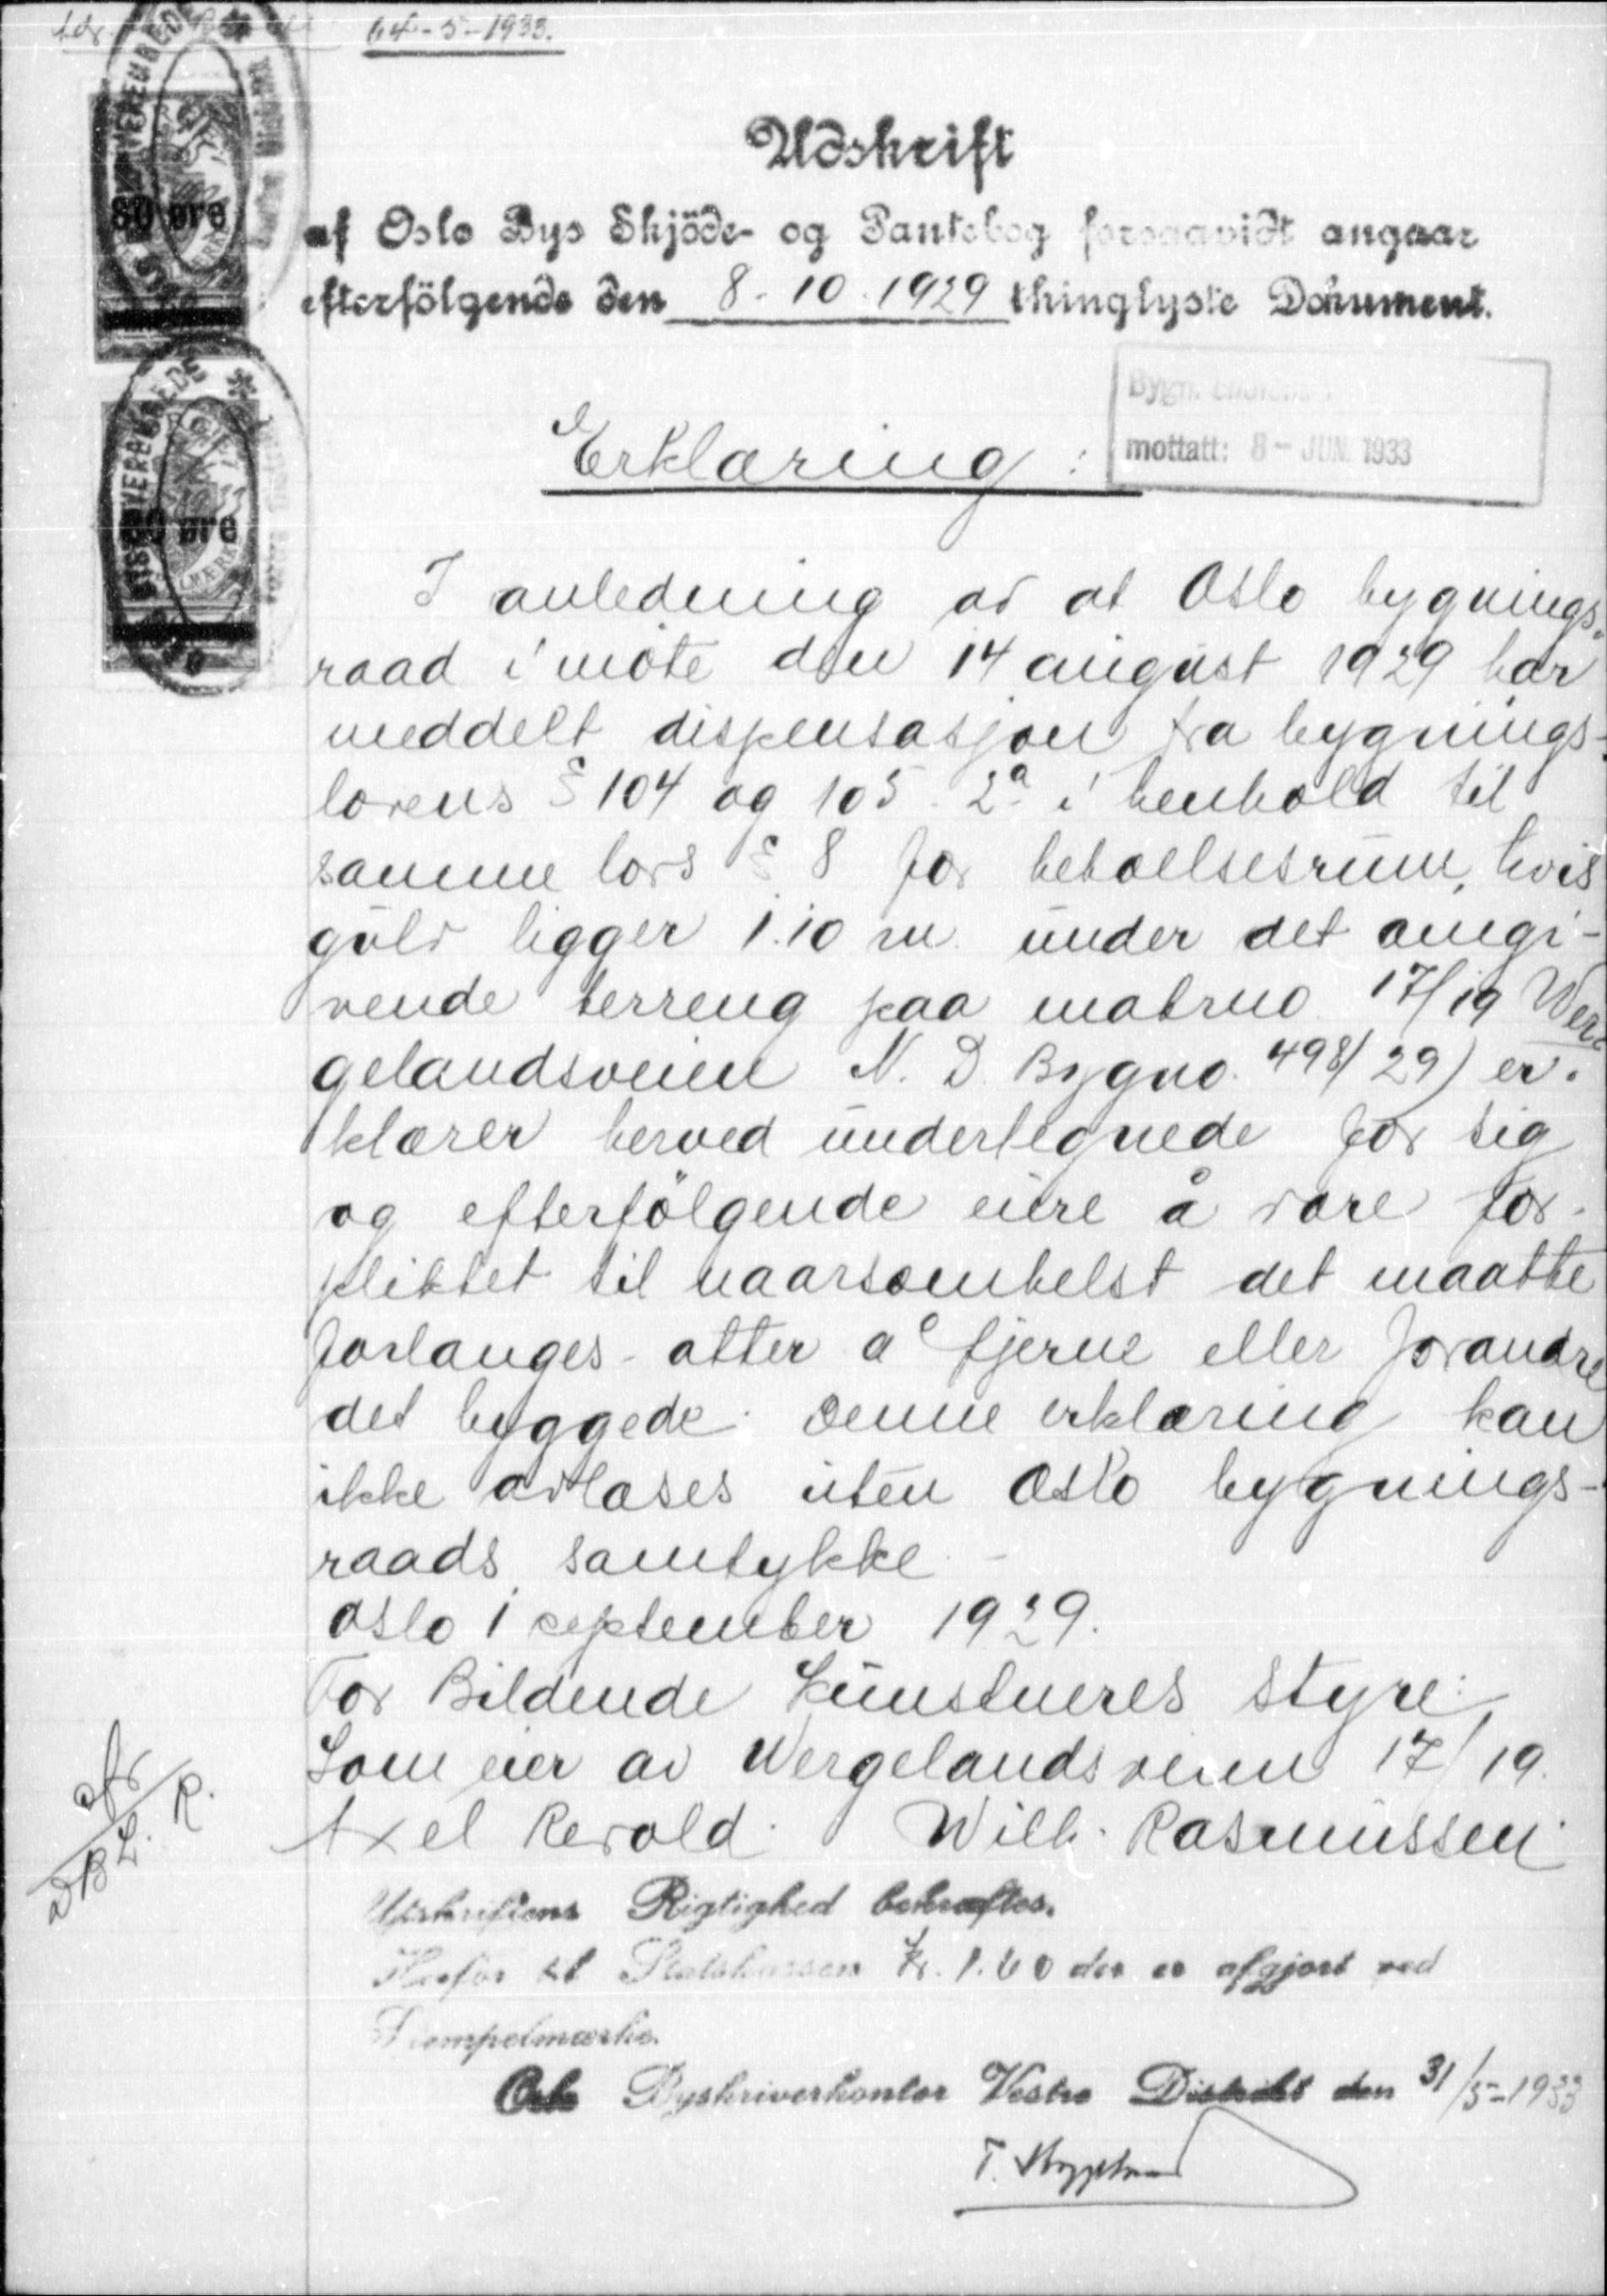 64-5-1933.
Udskrift
af Oslo Bys Skjöde- og Pantebog forsaavidt angaar
efterfölgende den 8-10-1929 thinglyste Dokument.
Bygn.
mottatt: 8 - JUN. 1933
Erklæring:
80 øre
80 øre
I anledning av at Oslo bygnings-
raad i møte den 14 august 1929 har
meddelt dispensasjon fra bygnings-
lovens § 104 og 105 2a i henhold til
samme lovs § 8 for beboelsesrum, hvis
gulv ligger 1.10 m. under det omgi-
vende terreng paa matrno 17/19 Wer-
gelandsveien N. D. Bygno. 498/29) er-
klærer herved undertegnede for sig
og efterfölgende eiere å være for-
pliktet til naarsomhelst det maatte
forlanges atter å fjerne eller forandre
det byggede. Denne erklæring kan
ikke avlæses uten Oslo bygnings-
raads samtykke. -
Oslo 1 september 1929.
For Bildende Kunstneres Styre:
Som eier av Wergelandsveien 17/19.
Axel Revold. Wilh. Rasmussen.
Utskriftens Rigtighed bekræftes.
Herfor til Statskassen kr. 1.60 der er afgjort ved
Stempelmærke.
Oslo Byskriverkontor Vestre Distrikt den 31/5-1933